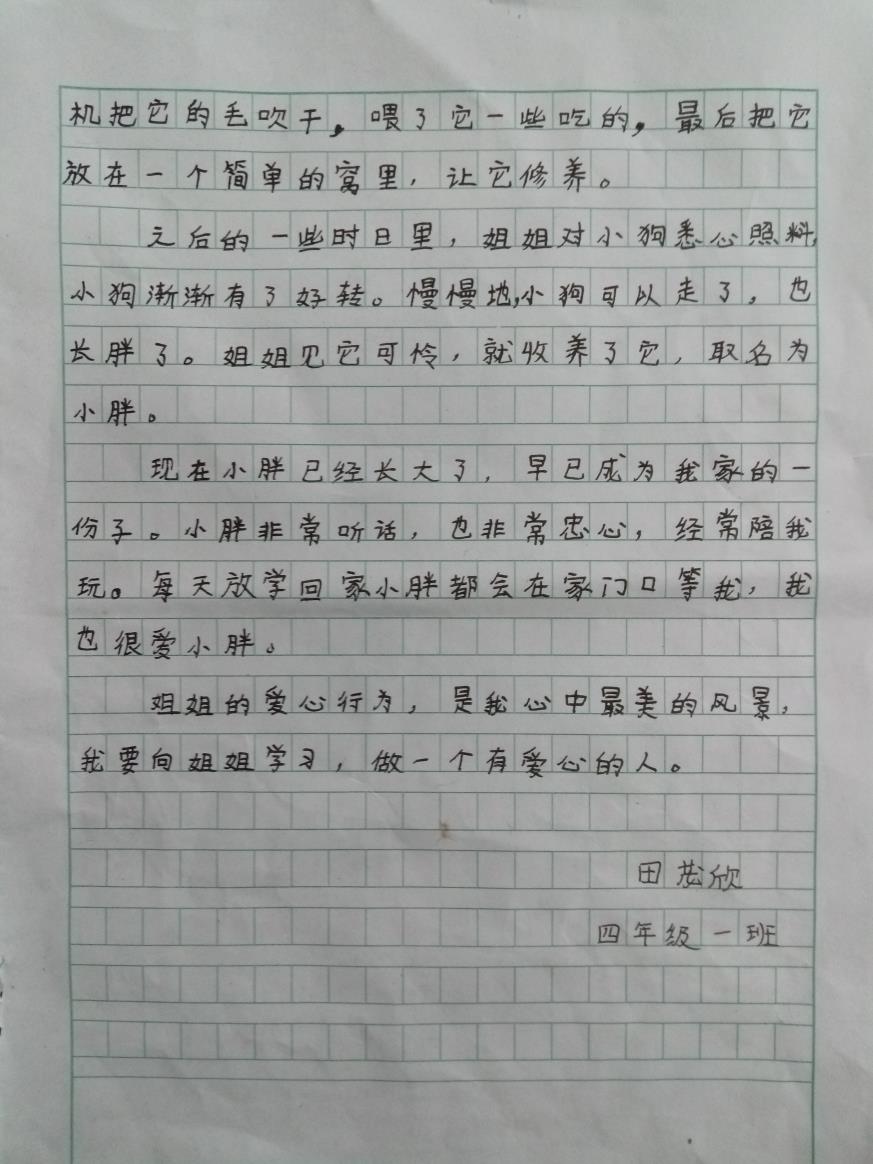 机把它的毛吹干，喂了它一些吃的，最后把它
放在一个简单的窝里，让它修养。
之后的一些时日里，姐姐对小狗悉心照料，
小狗渐渐有了好转。慢慢地，小狗可以走了，也
长胖了。姐姐见它可怜，就收养了它，取名为
小胖。
现在小胖已经长大了，早已成为我家的一
份子。小胖非常听话，也非常忠心，经常陪我
玩。每天放学回家小胖都会在家门口等我，我
也很爱小胖。
姐姐的爱心行为，是我心中最美的风景，
我要向姐姐学习，做一个有爱心的人。
田 欣
四年级一班